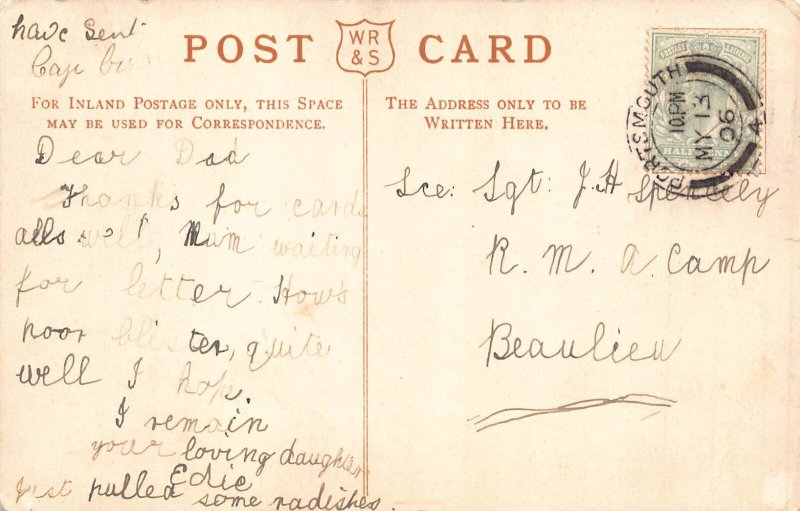 have sent
Cap
POST WR & S CARD
FOR INLAND POSTAGE ONLY, THIS SPACE
MAY BE USED FOR CORRESPONDENCE.
THE ADDRESS ONLY TO BE
WRITTEN HERE.
Dear Dad
Thanks for cards
alls well, Mum waiting
for letter. How's
poor blister, quite
well I hop.
I remain
your loving daughter
Edie
Just pulled some radishes.
Sce: Sgt: J. H Spendely
R. M. A. Camp
Beaulieu
PORTSMOUTH
10.PM
MY 13
06
POSTAGE
HALFPENNY